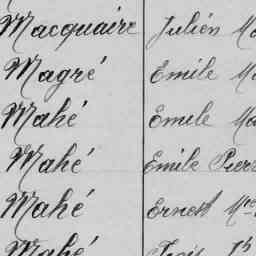 Macquaire Julien
Magré Emile
Mahé Emile
Mahé Emile Pierre
Mahé Ernest
Mahé